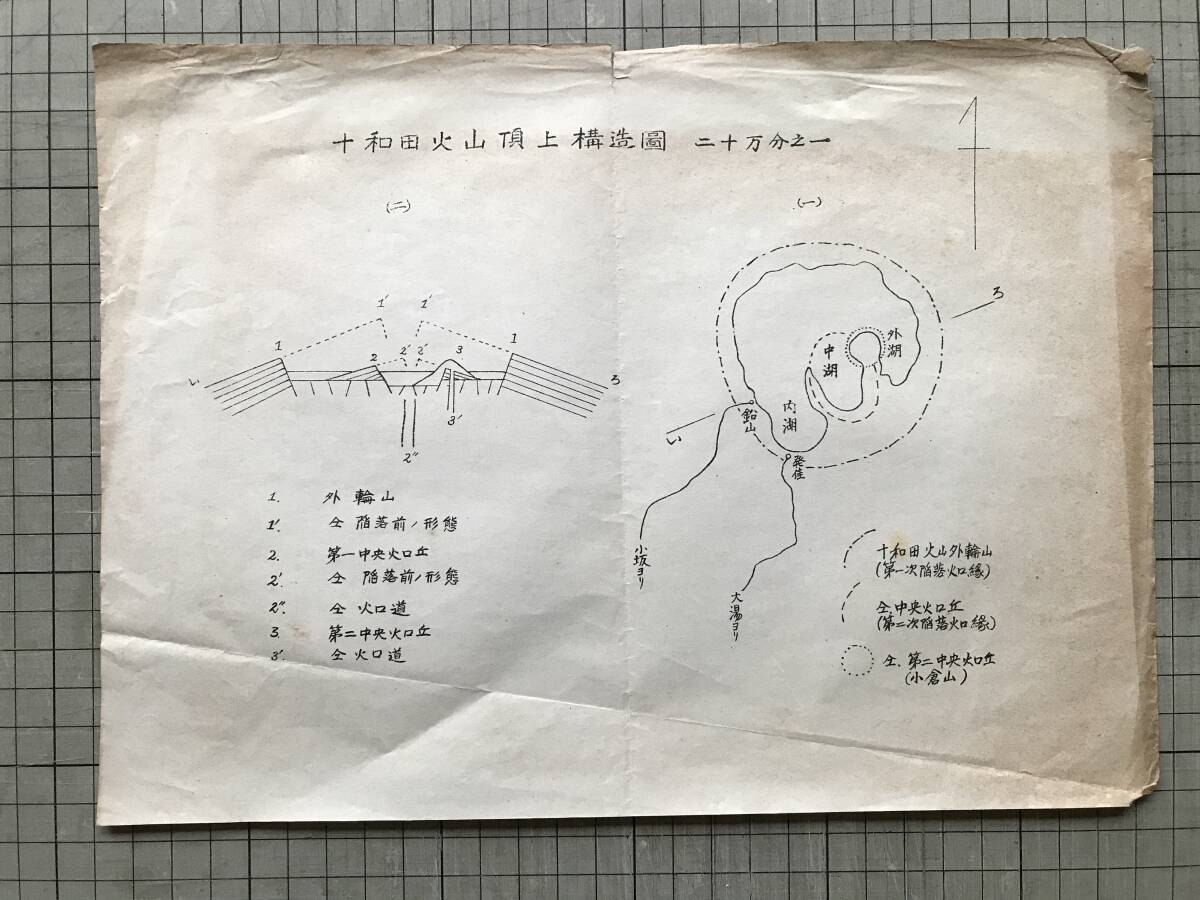 十和田火山頂上構造圖 二十万分之一
(一)
ろ
外湖
中湖
内湖
鉛山
い
発荷
小坂ヨリ
大湯ヨリ
十和田火山外輪山
(第一次陥落火口縁)
仝中央火口丘
(第二次陥落火口縁)
仝、第二中央火口丘
(小倉山)
(二)
1' 1'
1 2 2' 2' 3 1
い ろ
3'
2"
1. 外輪山
1'. 仝 陥落前ノ形態
2. 第一中央火口丘
2'. 仝 陥落前ノ形態
2". 仝 火口道
3. 第二中央火口丘
3'. 仝 火口道